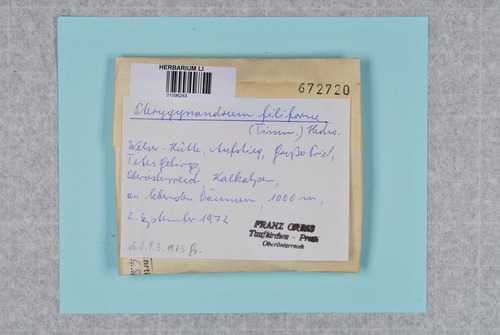 HERBARIUM LI
01596243
672720
Pterygynandrum filiforme
(Timm.) Hedw.
Welser-Hütte, Aufstieg, Großer Priel,
Totes Gebirge,
Oberösterreich, Kalkalpen,
an lebenden Bäumen, 1000 m,
2. September 1972
FRANZ GRIMS
Taufkirchen - Pram
Oberösterreich
1983 Gr.